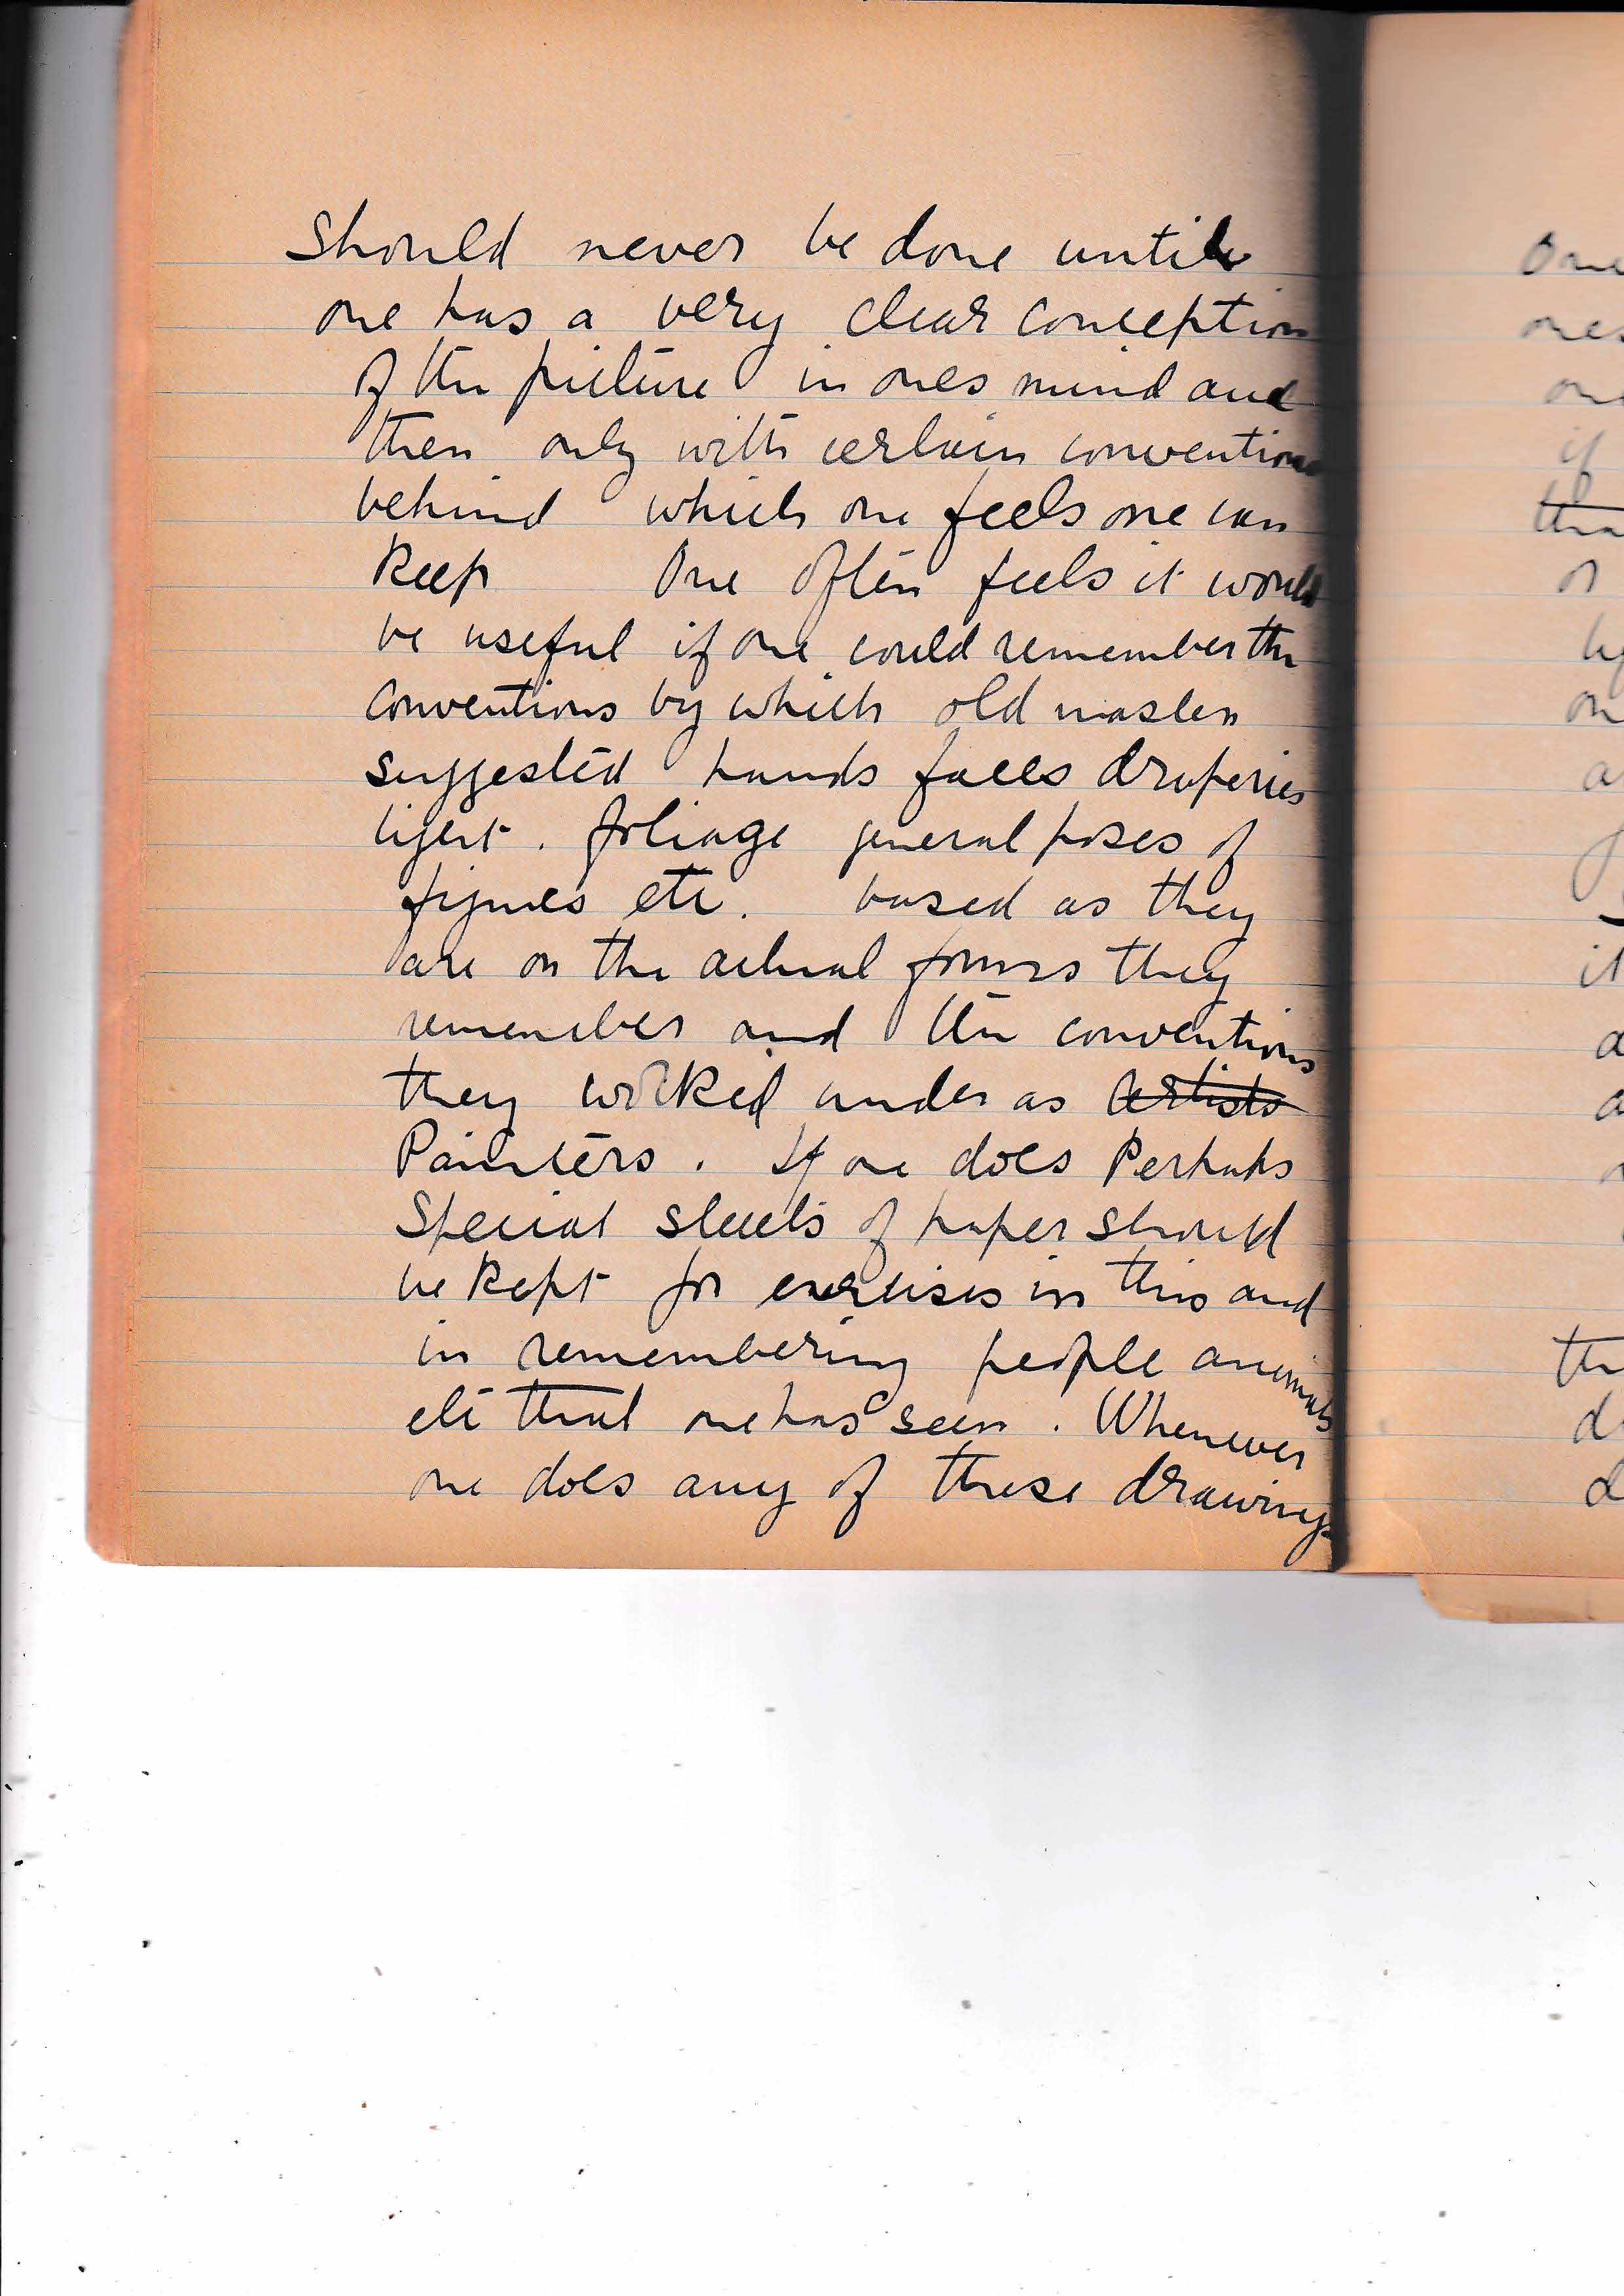 Should never be done until
one has a very clear conception
of the picture in ones mind and
then only with certain conventions
behind which one feels one can
Keep One often feels it would
be useful if one could remember the
conventions by which old masters
suggested hands faces draperies
light. foliage general poses of
figures etc. based as they
are on the actual forms they
remember and the conventions
they worked under as artists
Painters. If one does Perhaps
Special sheets of paper should
be Kept for exercises in this and
in remembering people animals
etc that one has seen. Whenever
one does any of these drawings